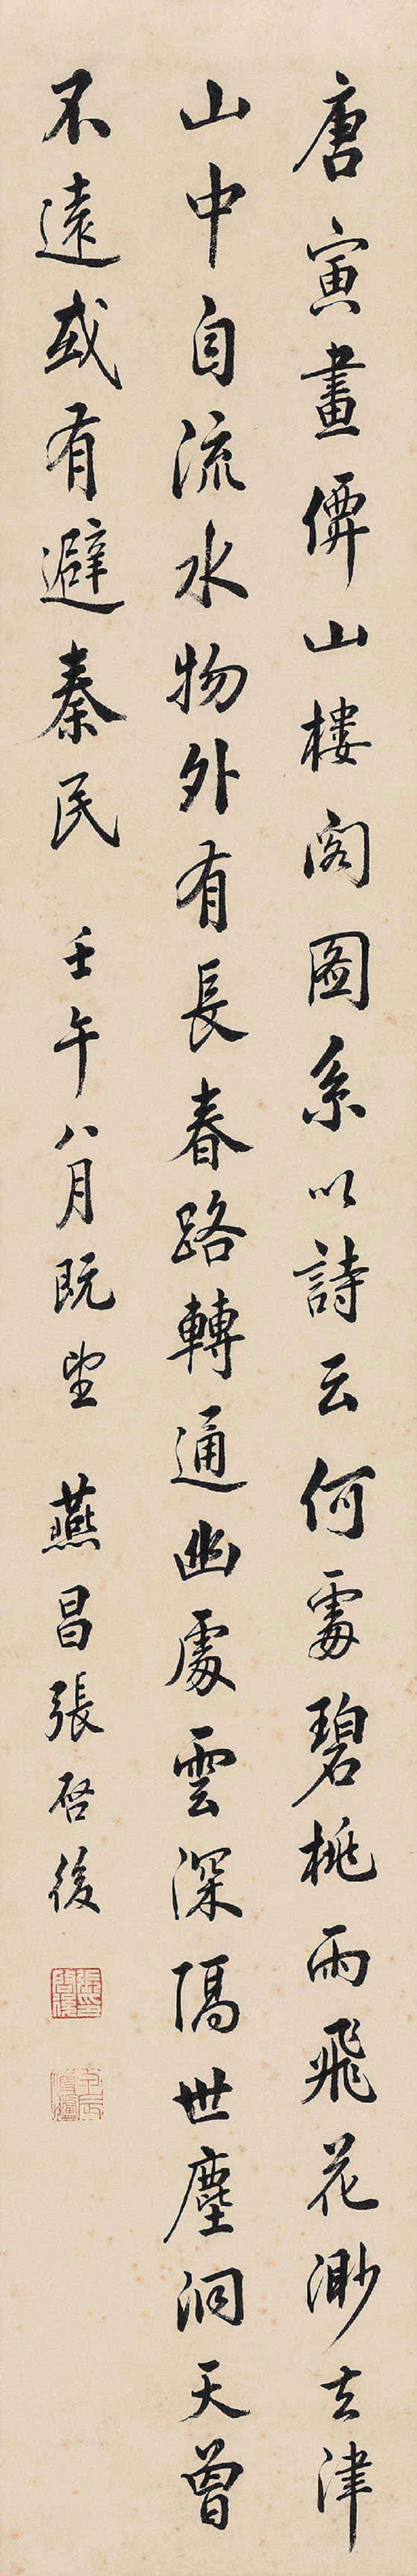 唐寅畫僊山樓閣圖系以詩云何處碧桃雨飛花渺去津
山中自流水物外有長春路轉通幽處雲深隔世塵洞天曾
不遠或有避秦民 壬午八月既望 燕昌張啓後
張啓後